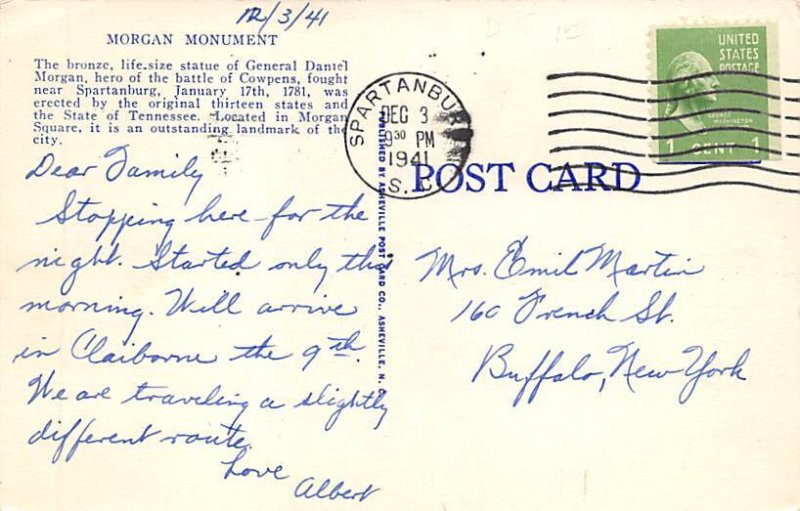 12/3/41
MORGAN MONUMENT
The bronze, life-size statue of General Daniel
Morgan, hero of the battle of Cowpens, fought
near Spartanburg, January 17th, 1781, was
erected by the original thirteen states and
the State of Tennessee. Located in Morgan
Square, it is an outstanding landmark of the
city.
Dear Family
Stopping here for the
night. Started only this
morning. Will arrive
in Claiborne the 9th.
We are traveling a slightly
different route.
Love
Albert
PUBLISHED BY ASHEVILLE POST CARD CO., ASHEVILLE, N. C.
SPARTANBURG
DEC 3
9 30 PM
1941
S. C.
POST CARD
UNITED
STATES
POSTAGE
GEORGE
WASHINGTON
1 CENT 1
Mrs. Emil Martin
160 French St.
Buffalo, New York